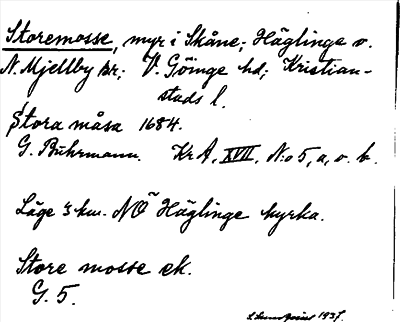 Storemosse, myr i Skåne; Häglinge o.
N. Mjellby sr; V. Göinge hd; Kristian-
stads l.
Stora måsa 1684.
G. Buhrmann. KrA, XVII, N:o 5, a, o. b.
Läge 3 km. NÖ Häglinge kyrka.
Store mosse ek.
G. 5.
1937.